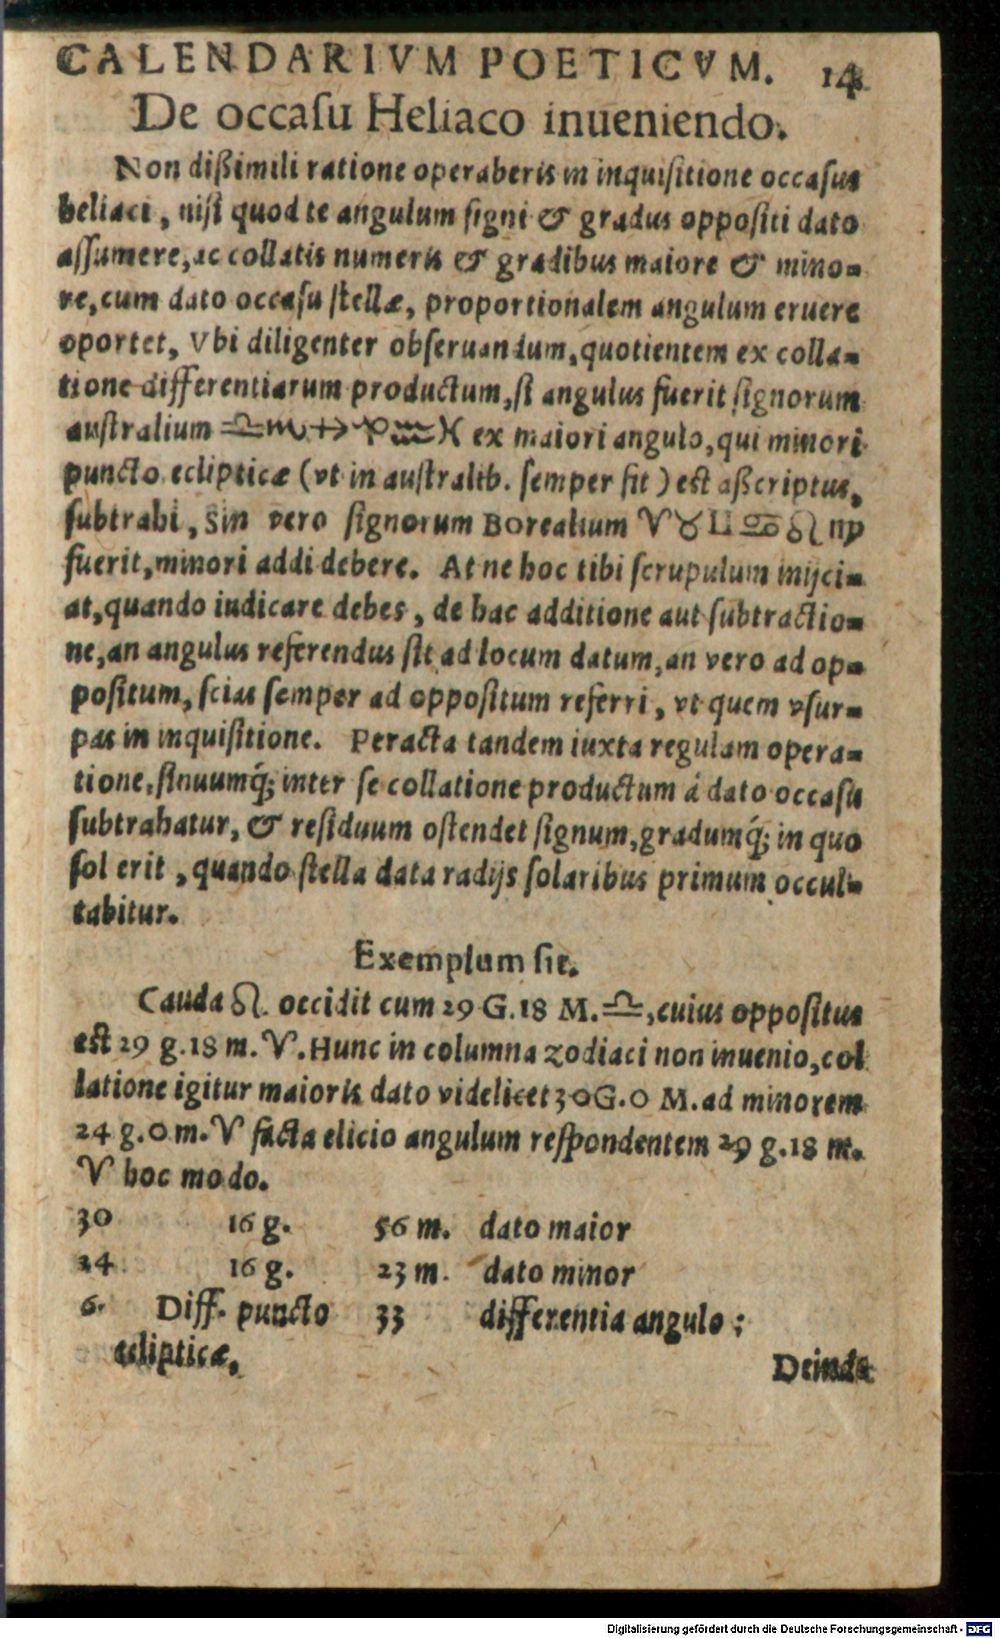 CALENDARIVM POETICVM. 14
De occaſu Heliaco inueniendo.
Non dißimili ratione operaberis in inquiſitione occaſus
heliaci, niſi quod te angulum ſigni & gradus oppoſiti dato
aſſumere, ac collatis numeris & gradibus maiore & mino-
re, cum dato occaſu ſtellæ, proportionalem angulum eruere
oportet, Vbi diligenter obſeruandum, quotientem ex colla-
tione differentiarum productum, ſi angulus fuerit ſignorum
auſtralium ♎♏♐♑♒♓ ex maiori angulo, qui minori
puncto eclipticæ (vt in auſtralib. ſemper fit) est aßcriptus,
ſubtrahi, Sin vero ſignorum Borealium ♈♉♊♋♌♍
fuerit, minori addi debere. At ne hoc tibi ſcrupulum inijci-
at, quando iudicare debes, de hac additione aut ſubtractio-
ne, an angulus referendus ſit ad locum datum, an vero ad op-
poſitum, ſcias ſemper ad oppoſitum referri, vt quem vſur-
pas in inquiſitione. Peracta tandem iuxta regulam opera-
tione, ſinuumq́; inter ſe collatione productum á dato occaſu
ſubtrahatur, & reſiduum oſtendet ſignum, gradumq́; in quo
ſol erit, quando ſtella data radijs ſolaribus primum occul-
tabitur.
Exemplum ſit.
Cauda ♌. occidit cum 29 G. 18 M. ♎, cuius oppoſitus
est 29 g. 18 m. ♈. Hunc in columna zodiaci non inuenio, col
latione igitur maioris dato videlicet 30 G. 0 M. ad minorem
24 g. 0 m. ♈ facta elicio angulum reſpondentem 29 g. 18 m.
♈ hoc modo.
30 16 g. 56 m. dato maior
24 16 g. 23 m. dato minor
6. Diff. puncto 33 differentia angulo;
eclipticæ,
Deinde
Digitalisierung gefördert durch die Deutsche Forschungsgemeinschaft - DFG